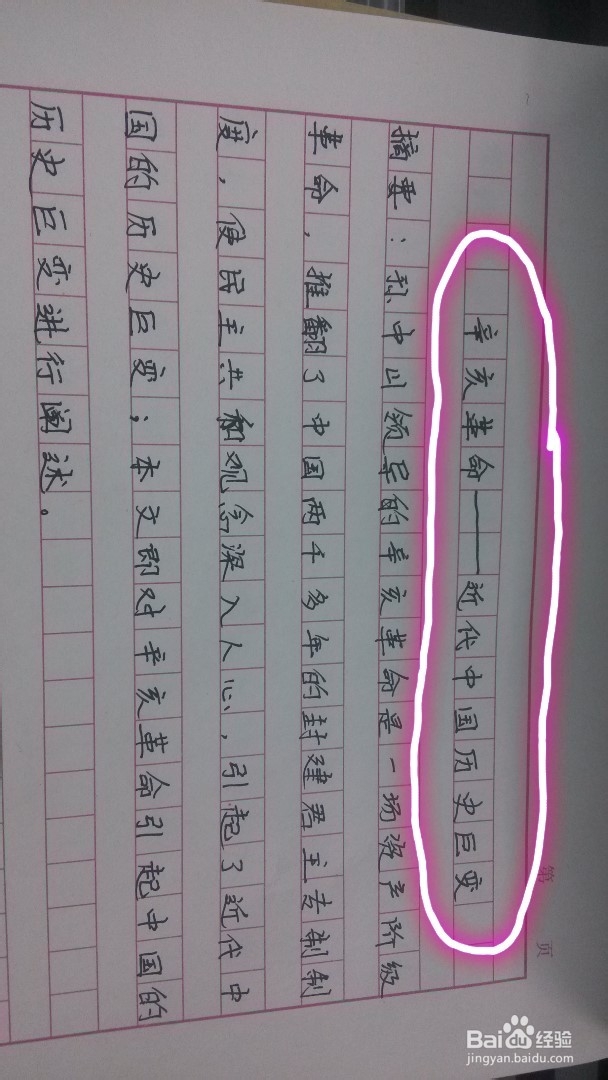 辛亥革命——近代中国历史巨变
摘要：孙中山领导的辛亥革命是一场资产阶级
革命，推翻了中国两千多年的封建君主专制制
度，使民主共和观念深入人心，引起了近代中
国的历史巨变；本文即对辛亥革命引起中国的
历史巨变进行阐述。
第 页
Baidu经验
jingyan.baidu.com